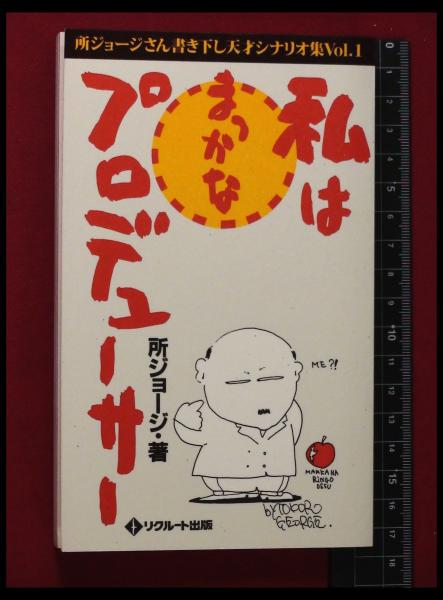 所ジョージさん書き下し天才シナリオ集Vol.1
私は
まっかな
プロデューサー
所ジョージ・著
ME?!
MAKKANA
RINGO
DESU
by TOKORO
GEORGE.
リクルート出版
0
5
10
15
16
17
18